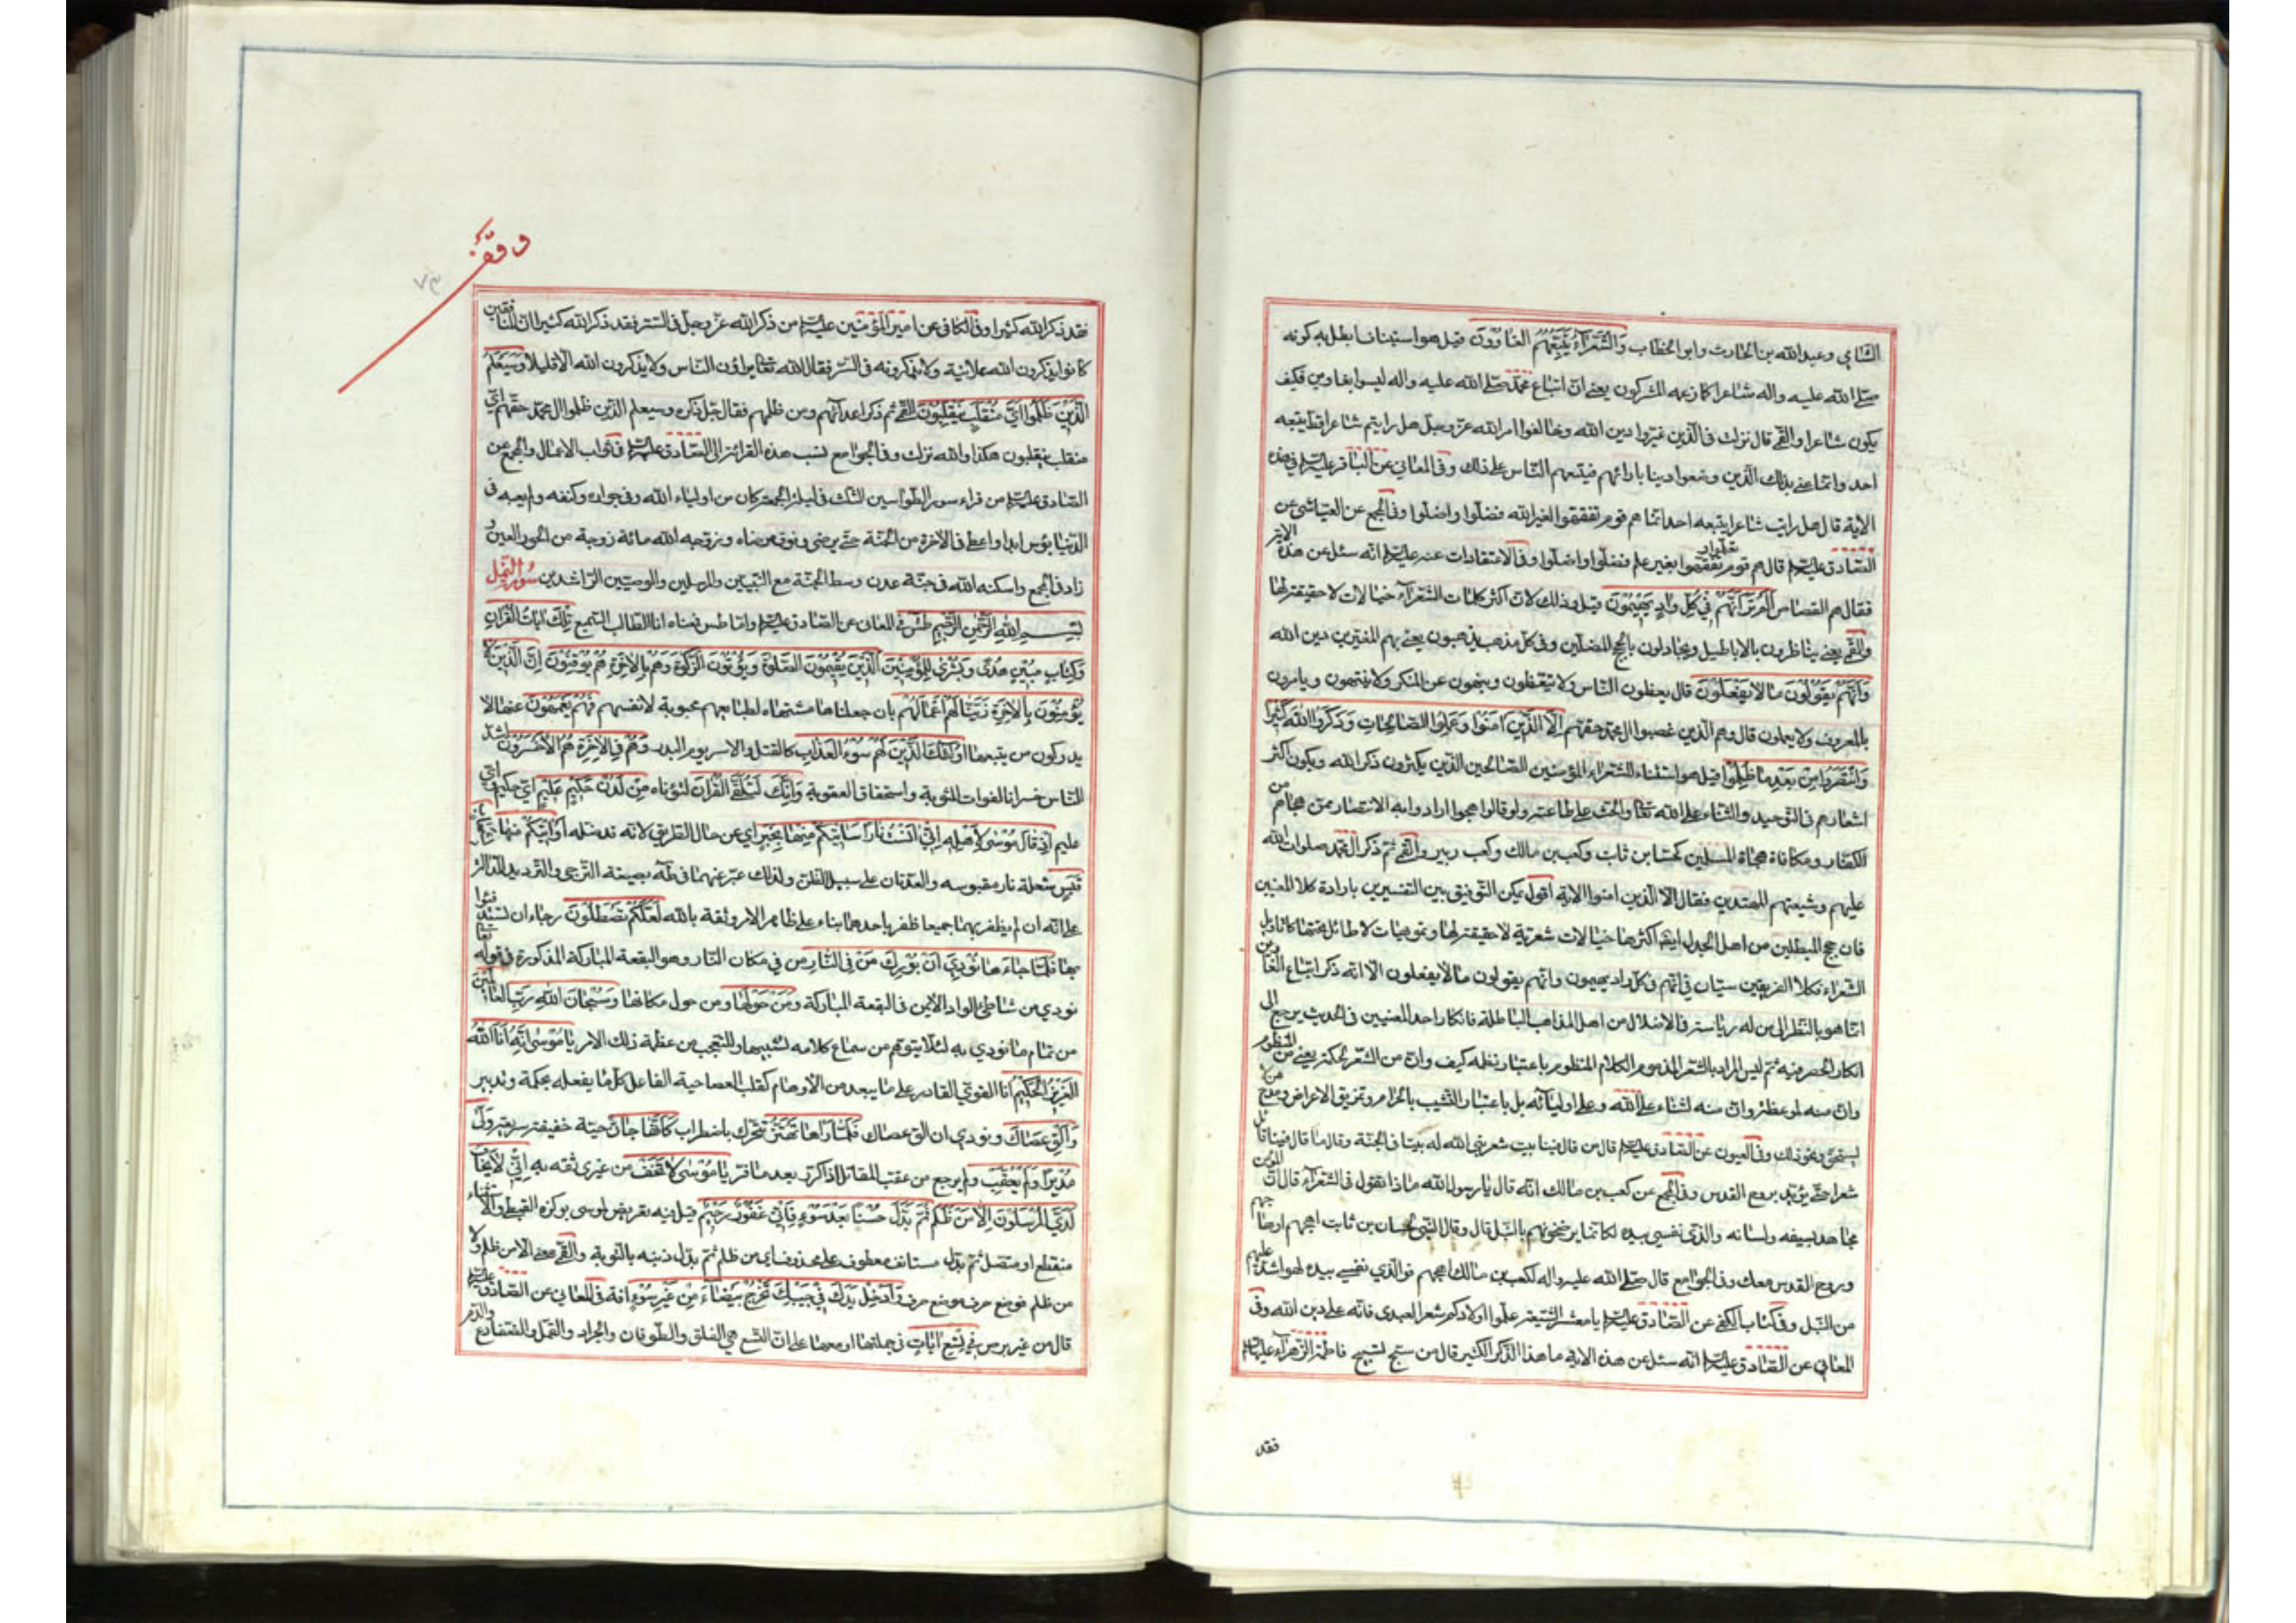 الشامي وعبد الله بن الحارث وابو الخطاب وَالشُّعَرَآءُ يَتَّبِعُهُمُ الغَاوُونَ قيل هو استيناف ابطل به كونه
صلّى الله عليه واله شاعرا كما زعمه المشركون يعني انّ اتباع محمّد صلّى الله عليه واله ليسوا بغاوين فكيف
يكون شاعرا والقمّي قال نزلت في الّذين غيّروا دين الله وخالفوا امر الله عزّ وجلّ هل رايتم شاعرا قطّ يتبعه
احد وانّما عنى بذلك الّذين وضعوا دينا بارائهم فيتبعهم النّاس على ذلك وفي المعاني عن الباقر عليه السلام في هذه
الاية قال هل رايت شاعرا يتبعه احد انّما هم قوم تفقّهوا لغير الله فضلّوا واضلّوا وفي المجمع عن العيّاشي عن
الصّادق عليه السلام قال هم قوم تعلّموا وتفقّهوا بغير علم فضلّوا واضلّوا وفي الاعتقادات عنه عليه السلام انّه سئل عن هذه الاية
فقال هم القصّاص اَلَمْ تَرَ اَنَّهُمْ فِي كُلِّ وَادٍ يَهِيمُونَ قيل وذلك لانّ اكثر كلمات الشّعرآء خيالات لا حقيقة لها
والقمّي يعني يناظرون بالاباطيل ويجادلون بالحجج المضلّين وفي كلّ مذهب يذهبون يعني بهم المغيّرين دين الله
وَاَنَّهُمْ يَقُولُونَ مَا لا يَفْعَلُونَ قال يعظون النّاس ولا يتّعظون وينهون عن المنكر ولا ينتهون ويامرون
بالمعروف ولا يعملون قال وهم الّذين غصبوا ال محمّد حقّهم اِلَّا الَّذِينَ امَنُوا وَعَمِلُوا الصَّالِحَاتِ وَذَكَرُوا اللهَ كَثِيرًا
وَانْتَصَرُوا مِنْ بَعْدِ مَا ظُلِمُوا قيل هو استثناء للشّعراء المؤمنين الصّالحين الّذين يكثرون ذكر الله ويكون اكثر
اشعارهم في التّوحيد والثّناء على الله تعالى والحثّ على طاعته ولو قالوا هجوا ارادوا به الانتصار ممّن هجاهم من
الكفّار ومكافاة هجاة المسلمين كحسّان بن ثابت وكعب بن مالك وكعب بن زهير والقمّي ثمّ ذكر ال محمّد صلوات الله
عليهم وشيعتهم المهتدين فقال الّا الّذين امنوا الاية اقول يمكن التّوفيق بين التّفسيرين بارادة كلا المعنيين
فان حجج المبطلين من اهل الجدل ايضا اكثرها خيالات شعريّة لا حقيقة لها وتمويهات لا طائل تحتها كاقاويل
الشّعراء فكلا الفريقين سيّان في انّهم في كلّ واد يهيمون وانّهم يقولون ما لا يفعلون الّا انّه ذكر اتباع الغاوين
انّما هو بالنّظر الى من له رياسة في الاضلال من اهل المذاهب الباطلة فانكار احد المعنيين في الحديث يرجع الى
انكار الحصر فيه ثمّ ليس المراد بالشّعر المذموم الكلام المنظوم باعتبار نظمه كيف وانّ من الشّعر لحكمة يعني من المنظوم
وانّ منه لموعظة وانّ منه لثناء على الله وعلى اوليائه بل باعتبار التّشبيب بالحرام وتمزيق الاعراض ومدح من لا
يستحقّ ونحو ذلك وفي العيون عن الصّادق عليه السلام قال من قال فينا بيت شعر بنى الله له بيتا في الجنّة وقال ما قال فينا قائل
شعرا حتّى يؤيّد بروح القدس وفي المجمع عن كعب بن مالك انّه قال يا رسول الله ماذا تقول في الشّعرآء قال انّ المؤمن
مجاهد بسيفه ولسانه والّذي نفسي بيده لكانّما يرضخونهم بالنّبل قال وقال النّبي لحسان بن ثابت اهجهم او هاجهم
وروح القدس معك وفي الجوامع قال صلّى الله عليه واله لكعب بن مالك اهجهم فوالّذي نفسي بيده لهو اشدّ عليهم
من النّبل وفي كتاب الكشّي عن الصّادق عليه السلام يا معشر الشّيعة علّموا اولادكم شعر العبدي فانّه على دين الله وفي
المعاني عن الصّادق عليه السلام انّه سئل عن هذه الاية ما هذا الذّكر الكثير قال من سبّح تسبيح فاطمة الزّهرآء عليها السلام
فقد
وقف
٧٣
فقد ذكر الله كثيرا وفي الكافي عن امير المؤمنين عليه السلام من ذكر الله عزّ وجلّ في السّر فقد ذكر الله كثيرا انّ المنافقين
كانوا يذكرون الله علانية ولا يذكرونه في السّر فقال الله تعالى يراؤن النّاس ولا يذكرون الله الّا قليلا وَسَيَعْلَمُ
الَّذِينَ ظَلَمُوا اَيَّ مُنْقَلَبٍ يَنْقَلِبُونَ القمّي ثمّ ذكر اعدائهم ومن ظلمهم فقال جلّ ذكره وسيعلم الّذين ظلموا ال محمّد حقّهم اي
منقلب ينقلبون هكذا والله نزلت وفي الجوامع نسب هذه القرائة الى الصّادق عليه السلام في ثواب الاعمال والمجمع عن
الصّادق عليه السلام من قراء سور الطّواسين الثّلث في ليلة الجمعة كان من اولياء الله وفي جوار الله وكنفه ولم يصبه في
الدّنيا بؤس ابدا واعطي في الاخرة من الجنّة حتّى يرضى وفوق رضاه وزوّجه الله مائة زوجة من الحور العين و
زاد في المجمع واسكنه الله في جنّة عدن وسط الجنّة مع النّبيّين والمرسلين والوصيّين الرّاشدين سُورة النّمل
بِسْمِ اللهِ الرَّحْمنِ الرَّحِيمِ طس في المعاني عن الصّادق عليه السلام وامّا طس فمعناه انا الطّالب السّميع تِلْكَ ايَاتُ الْقُرانِ
وَكِتَابٍ مُبِينٍ هُدًى وَبُشْرى لِلْمُؤْمِنِينَ اَلَّذِينَ يُقِيمُونَ الصَّلوةَ وَيُؤْتُونَ الزَّكوةَ وَهُمْ بِالاخِرَةِ هُمْ يُوقِنُونَ اِنَّ الَّذِينَ لا
يُؤْمِنُونَ بِالاخِرَةِ زَيَّنَّا لَهُمْ اَعْمَالَهُمْ بان جعلناها مشتهاه لطباعهم محبوبة لانفسهم فَهُمْ يَعْمَهُونَ عنها لا
يدركون من يتبعها اُولئِكَ الَّذِينَ لَهُمْ سُوءُ العَذَابِ كالقتل والاسر يوم البدر وَهُمْ فِي الاخِرَةِ هُمُ الاَخْسَرُونَ اشدّ
النّاس خسرانا لفوات المثوبة واستحقاق العقوبة وَاِنَّكَ لَتُلَقَّى الْقُرانَ لتؤتاه مِنْ لَدُنْ حَكِيمٍ عَلِيمٍ اي حكيم واي
عليم اِذْ قَالَ مُوسى لِاَهْلِهِ اِنِّي انَسْتُ نَارًا سَاتِيكُمْ مِنْهَا بِخَبَرٍ اي عن حال الطّريق لانّه قد ضلّه اَوْ اتِيكُمْ مِنْهَا بِشِهَابٍ
قَبَسٍ شعلة نار مقبوسه والعدتان على سبيل الظنّ ولذلك عبّر عنهما في طه بصيغة التّرجي والتّرديد للدّلالة
على انّه ان لم يظفر بهما جميعا ظفر باحدهما بناء على ظاهر الامر وثقة بالله لَعَلَّكُمْ تَصْطَلُونَ رجاء ان تستدفئوا
بها فَلَمَّا جَاءَهَا نُودِيَ اَنْ بُورِكَ مَنْ فِي النَّارِ من في مكان النّار وهو البقعة المباركة المذكورة في قوله تعالى
نودي من شاطئ الواد الايمن في البقعة المباركة وَمَنْ حَوْلَهَا ومن حول مكانها وَسُبْحَانَ اللهِ رَبِّ العَالَمِينَ
من تمام ما نودي به لئلّا يتوهّم من سماع كلامه تشبيها وللتّعجّب من عظمة ذلك الامر يَا مُوسى اِنَّهُ اَنَا اللهُ
العَزِيزُ الْحَكِيمُ انا القويّ القادر على ما يبعد من الاوهام كقلب العصا حية الفاعل كلّ ما يفعله بحكمة وتدبير
وَاَلْقِ عَصَاكَ ونودي ان الق عصاك فَلَمَّا رَاهَا تَهْتَزُّ تتحرّك باضطراب كَاَنَّهَا جَانٌّ حيّة خفيفة سريعة وَلَّى
مُدْبِرًا وَلَمْ يُعَقِّبْ ولم يرجع من عقّب المقاتل اذا كرّ بعد ما فرّ يَا مُوسى لا تَخَفْ من غيري ثقة بي اِنِّي لا يَخَافُ
لَدَيَّ الْمُرْسَلُونَ اِلَّا مَنْ ظَلَمَ ثُمَّ بَدَّلَ حُسْنًا بَعْدَ سُوءٍ فَاِنِّي غَفُورٌ رَحِيمٌ قيل فيه تعريض لموسى بوكزه القبطي والاستثناء
منقطع او متّصل ثمّ بدّل مستانف معطوف على محذوف اي من ظلم ثمّ بدّل ذنبه بالتّوبة والقمّي معنى الّا من ظلم ولا
من ظلم فوضع حرف موضع حرف وَاَدْخِلْ يَدَكَ فِي جَيْبِكَ تَخْرُجْ بَيْضَآءَ مِنْ غَيْرِ سُوءٍ افة في المعاني عن الصّادق عليه السلام
قال من غير برص فِي تِسْعِ ايَاتٍ في جملتها او معها على انّ التّسع هي الفلق والطّوفان والجراد والقمّل والضّفادع والدّم